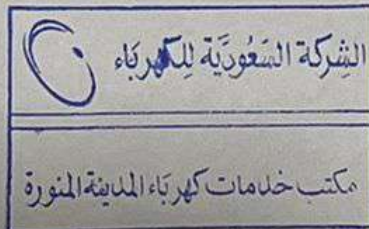 الشِركة السَعُودَيّة لِلكهربَاء
مكتب خدمات كهربَاء المدينة المنورة